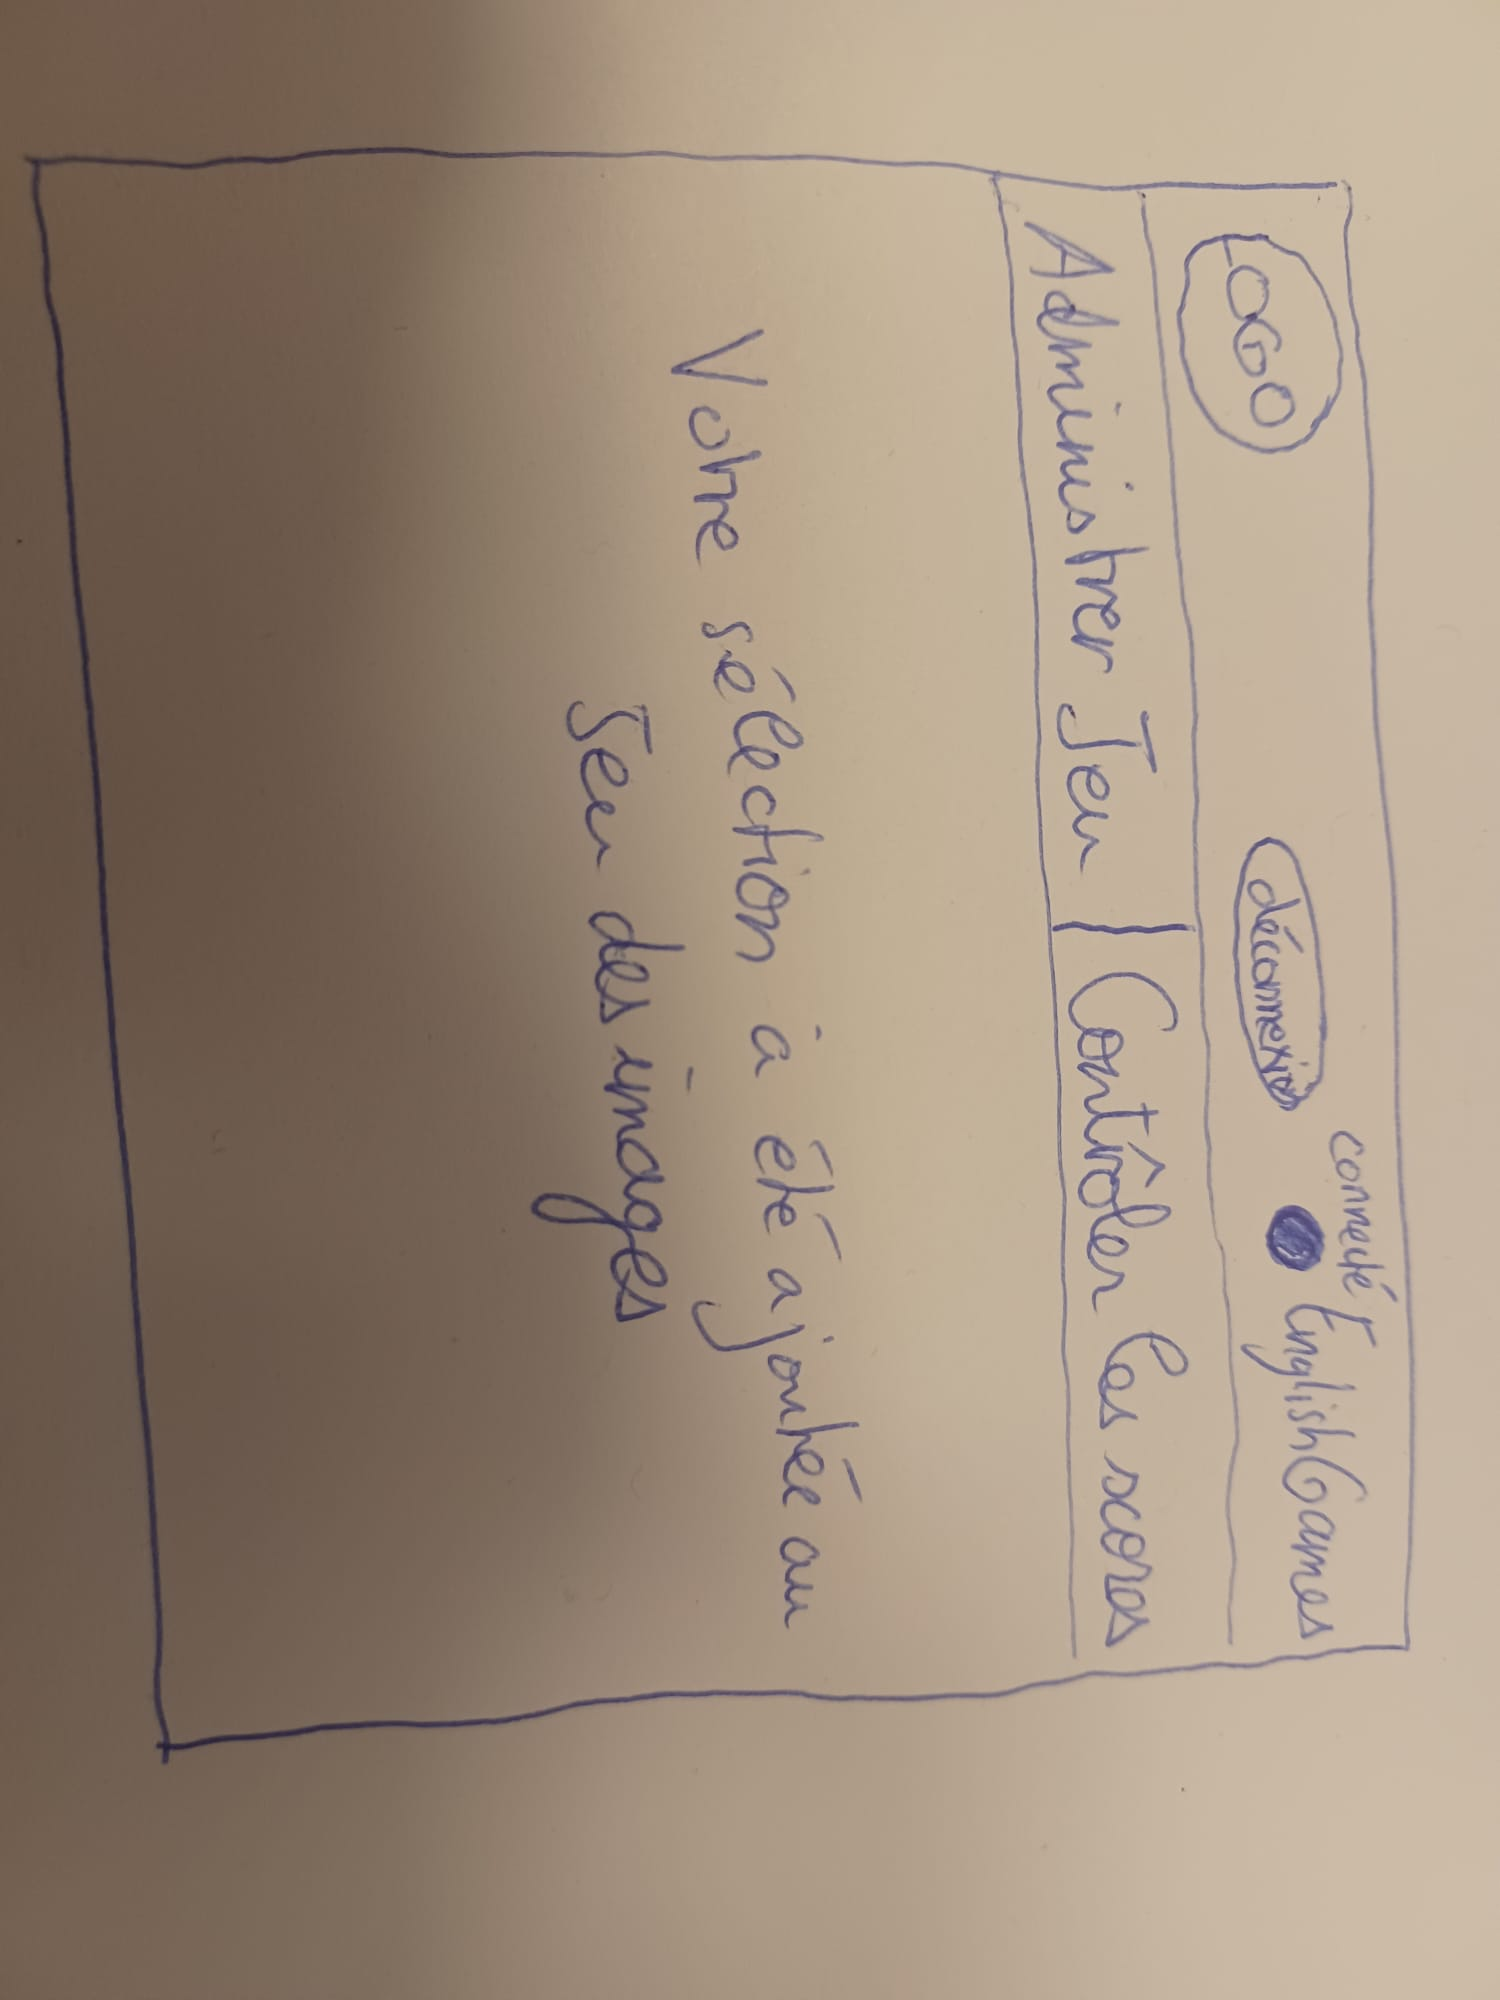 LOGO
déconnexion
connecté
EnglishGames
Administrer Jeu | Contrôler les scores
Votre sélection à été ajoutée au
Jeu des images